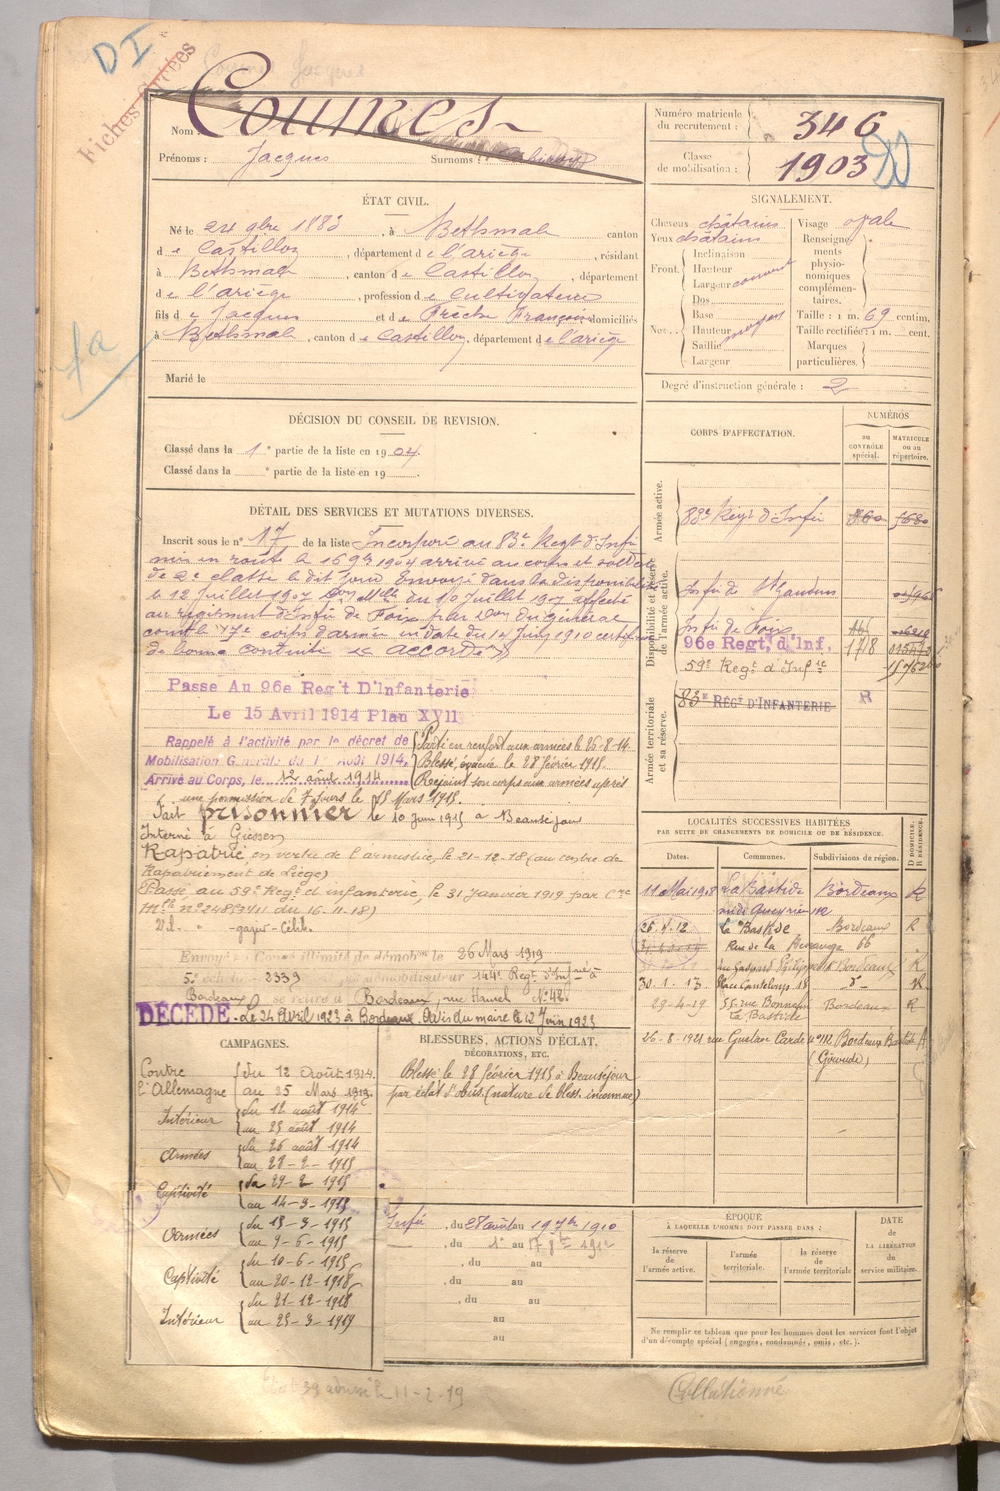 DI
Fiches
Nom : Counes
Prénoms : Jacques
Surnoms :
Numéro matricule du recrutement : 346
Classe de mobilisation : 1903
ÉTAT CIVIL.
Né le 24 9bre 1883, à Bethmale canton
de Castillon, département de l'ariège, résidant
à Bethmale, canton de Castillon, département
de l'ariège, profession de Cultivateur
fils de Jacques et de Frèche Françoise domiciliés
à Bethmale, canton de Castillon, département de l'ariège
Marié le
SIGNALEMENT.
Cheveux châtains
Yeux châtains
Front. Inclinaison
Hauteur
Largeur
Dos
Nez. Base
Hauteur moyen
Saillie
Largeur
Visage ovale
Renseignements physionomiques complémentaires.
Taille : 1 m. 69 centim.
Taille rectifiée : 1 m. cent.
Marques particulières.
Degré d'instruction générale : 2
DÉCISION DU CONSEIL DE REVISION.
Classé dans la 1e partie de la liste en 1904.
Classé dans la e partie de la liste en 19
CORPS D'AFFECTATION.
NUMÉROS
au CONTRÔLE spécial.
MATRICULE ou au répertoire.
Armée active.
83e Regt d'Infie
Disponibilité et réserve de l'armée active.
Inf ie de St Gaudens
Inf ie de Foix
96e Regt. d'Inf. 1718
59e Regt d'Inf ie
Armée territoriale et sa réserve.
83e RÉGT D'INFANTERIE
DÉTAIL DES SERVICES ET MUTATIONS DIVERSES.
Inscrit sous le n° 17 de la liste Incorporé au 83e Regt d'Infie
mis en route le 16 9bre 1904 arrivé au corps et soldat
de 2e classe le dit jour. Envoyé dans la disponibilité
le 12 Juillet 1907 Don Mlle du 10 Juillet 1907 affecté
au régiment d'Infie de Foix par Don du général
comt le 17e corps d'armée en date du 14 Juin 1910 certificat
de bonne conduite « accordé »
Passe Au 96e Reg't D'Infanterie
Le 15 Avril 1914 Plan XVII
Rappelé à l'activité par le décret de
Mobilisation Générale du 1er Août 1914,
Arrivé au Corps, le 12 août 1914
Parti en renfort aux armées le 26-8-14
Blessé, évacué le 28 février 1915
Rejoint son corps aux armées après
une permission de 7 jours le 15 Mars 1915.
Fait prisonnier le 10 Juin 1915 à Beauséjour
Interné à Giessen
Rapatrié, en vertu de l'armistice, le 21-12-18 (au centre de
Rapatriement de Liège)
Passé au 59e Regt d'infanterie, le 31 Janvier 1919 par Cre
Mlle n° 24853411 du 16-11-18)
Envoyé en Congé illimité de démobon le 26 Mars 1919
5e échelon 2339 démobilisateur 144e Regt d'Infie à
Bordeaux se retire à Bordeaux, rue Hamel N° 42.
DÉCÉDÉ. Le 24 Avril 1923 à Bordeaux. Avis du maire le 12 Juin 1923
LOCALITÉS SUCCESSIVES HABITÉES
PAR SUITE DE CHANGEMENTS DE DOMICILE OU DE RÉSIDENCE.
Dates. Communes. Subdivisions de région. D DOMICILE. R RÉSIDENCE.
11 Mai 1908 La Bastide Bordeaux R
25.4.12 La Bastide Bordeaux R
Rue de la Benauge 66
rue Gaspard Philippe Bordeaux R
30.1.13 Place Canteloup 18 d° R
29-4-19 55 rue Bonnefin Bordeaux R
La Bastide
26-8-1921 rue Gustave Carde n° 112 Bordeaux Bastide
(Gironde)
CAMPAGNES.
Contre l'Allemagne du 12 Août 1914.
au 25 Mars 1919.
Intérieur du 12 août 1914
au 25 août 1914
Armées du 26 août 1914
au 28-2-1915
Captivité du 29-2-1915
au 14-3-1915
Armées du 15-3-1915
au 9-6-1915
Captivité du 10-6-1915
au 20-12-1918
Intérieur du 21-12-1918
au 25-3-1919
BLESSURES, ACTIONS D'ÉCLAT,
DÉCORATIONS, ETC.
Blessé le 28 février 1915 à Beauséjour
par éclat d'obus. (nature de bless. inconnue)
Infie, du 28 août au 19 7bre 1910
, du 1er au 17 1912
, du au
, du au
, du au
au
au
ÉPOQUE
À LAQUELLE L'HOMME DOIT PASSER DANS :
la réserve de l'armée active.
l'armée territoriale.
la réserve de l'armée territoriale
DATE de LA LIBÉRATION du service militaire.
Ne remplir ce tableau que pour les hommes dont les services font l'objet
d'un décompte spécial (engagés, condamnés, omis, etc.).
11-2-19
Collationné